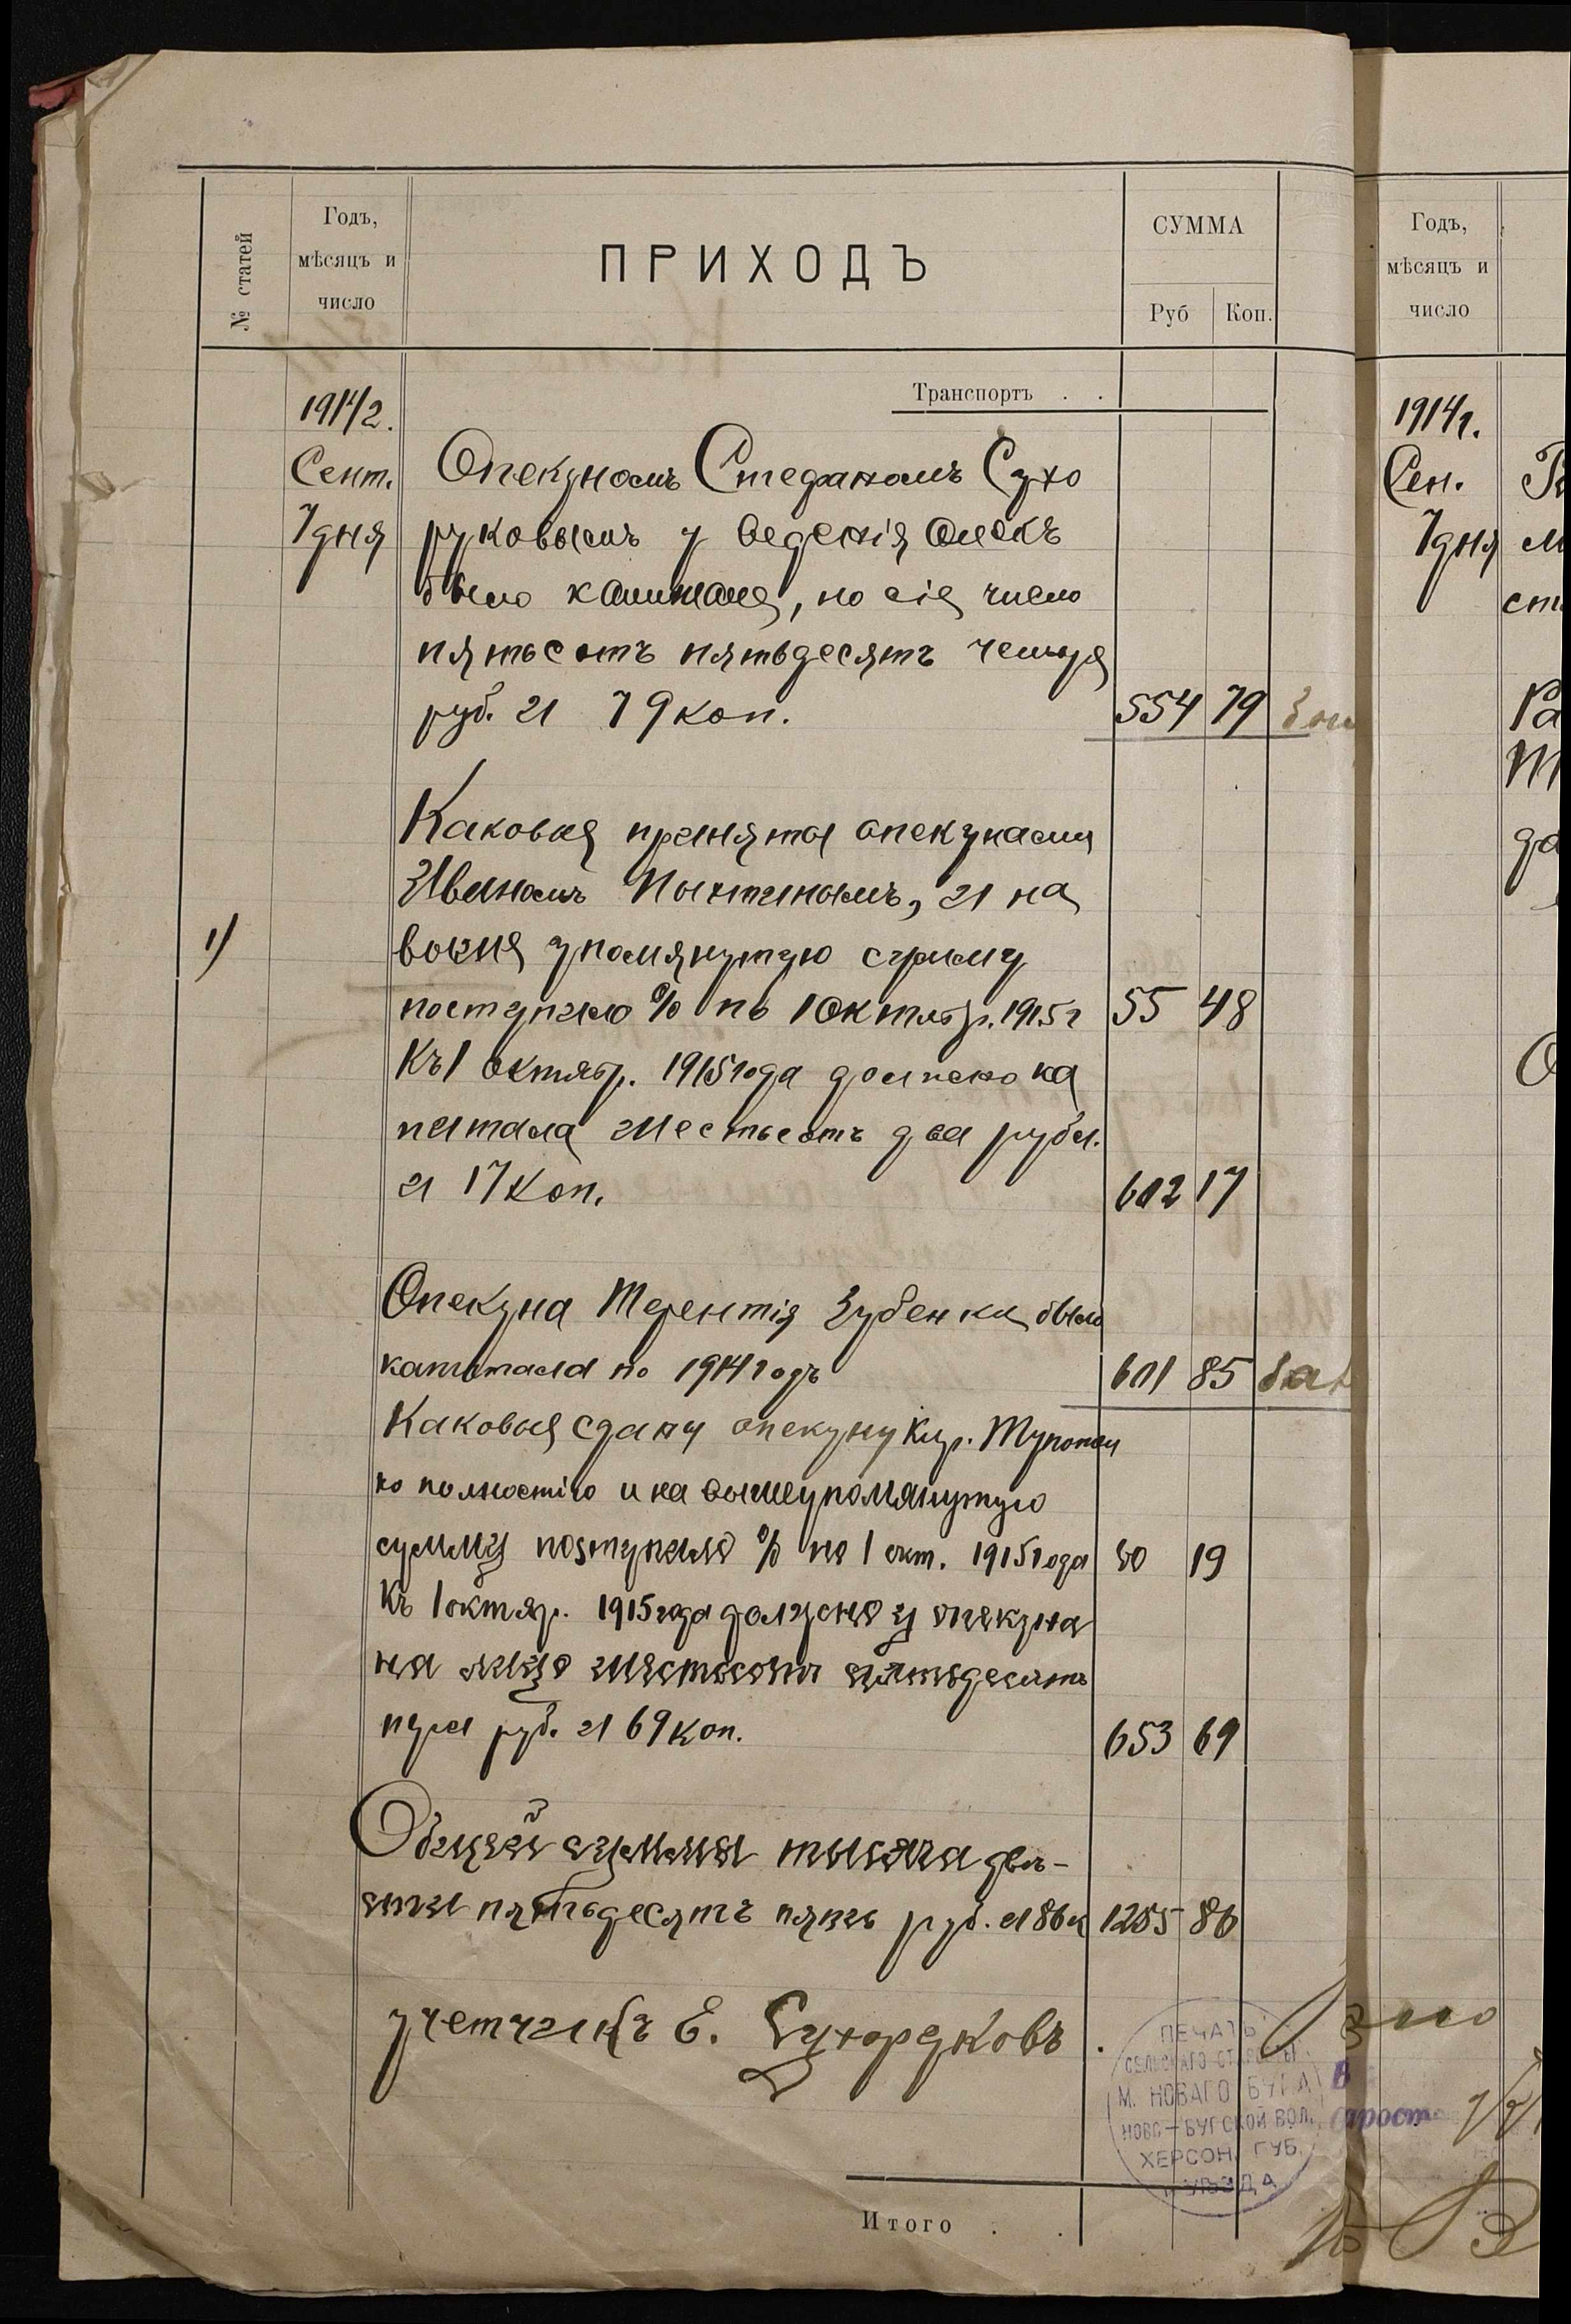 № статей
Годъ,
мѣсяцъ и
число
ПРИХОДЪ
СУММА
Руб
Коп.
Транспортъ . .
1914 г.
Сент.
7 дня
Опекуномъ Стефаномъ Сухо
руковымъ у веденія опекъ
было капитала, по сіе число
пятьсотъ пятьдесятъ четыре
руб. и 79 коп. 554 79
Каковыя приняты опекунами
Иваномъ Пыхтинымъ, и на
1) выше упомянутую сумму
поступило % по 1 Октябр. 1915 г 55 48
Къ 1 октябр. 1915 года должно ка
питала шестьсотъ два рубл.
и 17 коп. 602 17
Опекуна Терентія Зубенки было
капитала по 1914 годъ 601 85
Каковыя сданы опекуну Кир.
ко полностію и на вышеупомянутую
сумму поступило % по 1 окт. 1915 года 50 19
Къ 1 октяр. 1915 года должно у опекуна
на лицо шестьсотъ пятьдесятъ
руб. и 69 коп. 653 69
Общей суммы тысяча двѣ-
сти пятьдесятъ пять руб. и 86 к 1255 86
учетчикъ Е. Сухоруковъ.
ПЕЧАТЬ
СЕЛЬСКАГО СТАРОСТЫ
М. НОВАГО БУГА
НОВО-БУГСКОЙ ВОЛ.
ХЕРСОН. ГУБ.
УѢЗДА
Итого . .
Годъ,
мѣсяцъ и
число
1914 г.
Сен.
7 дня